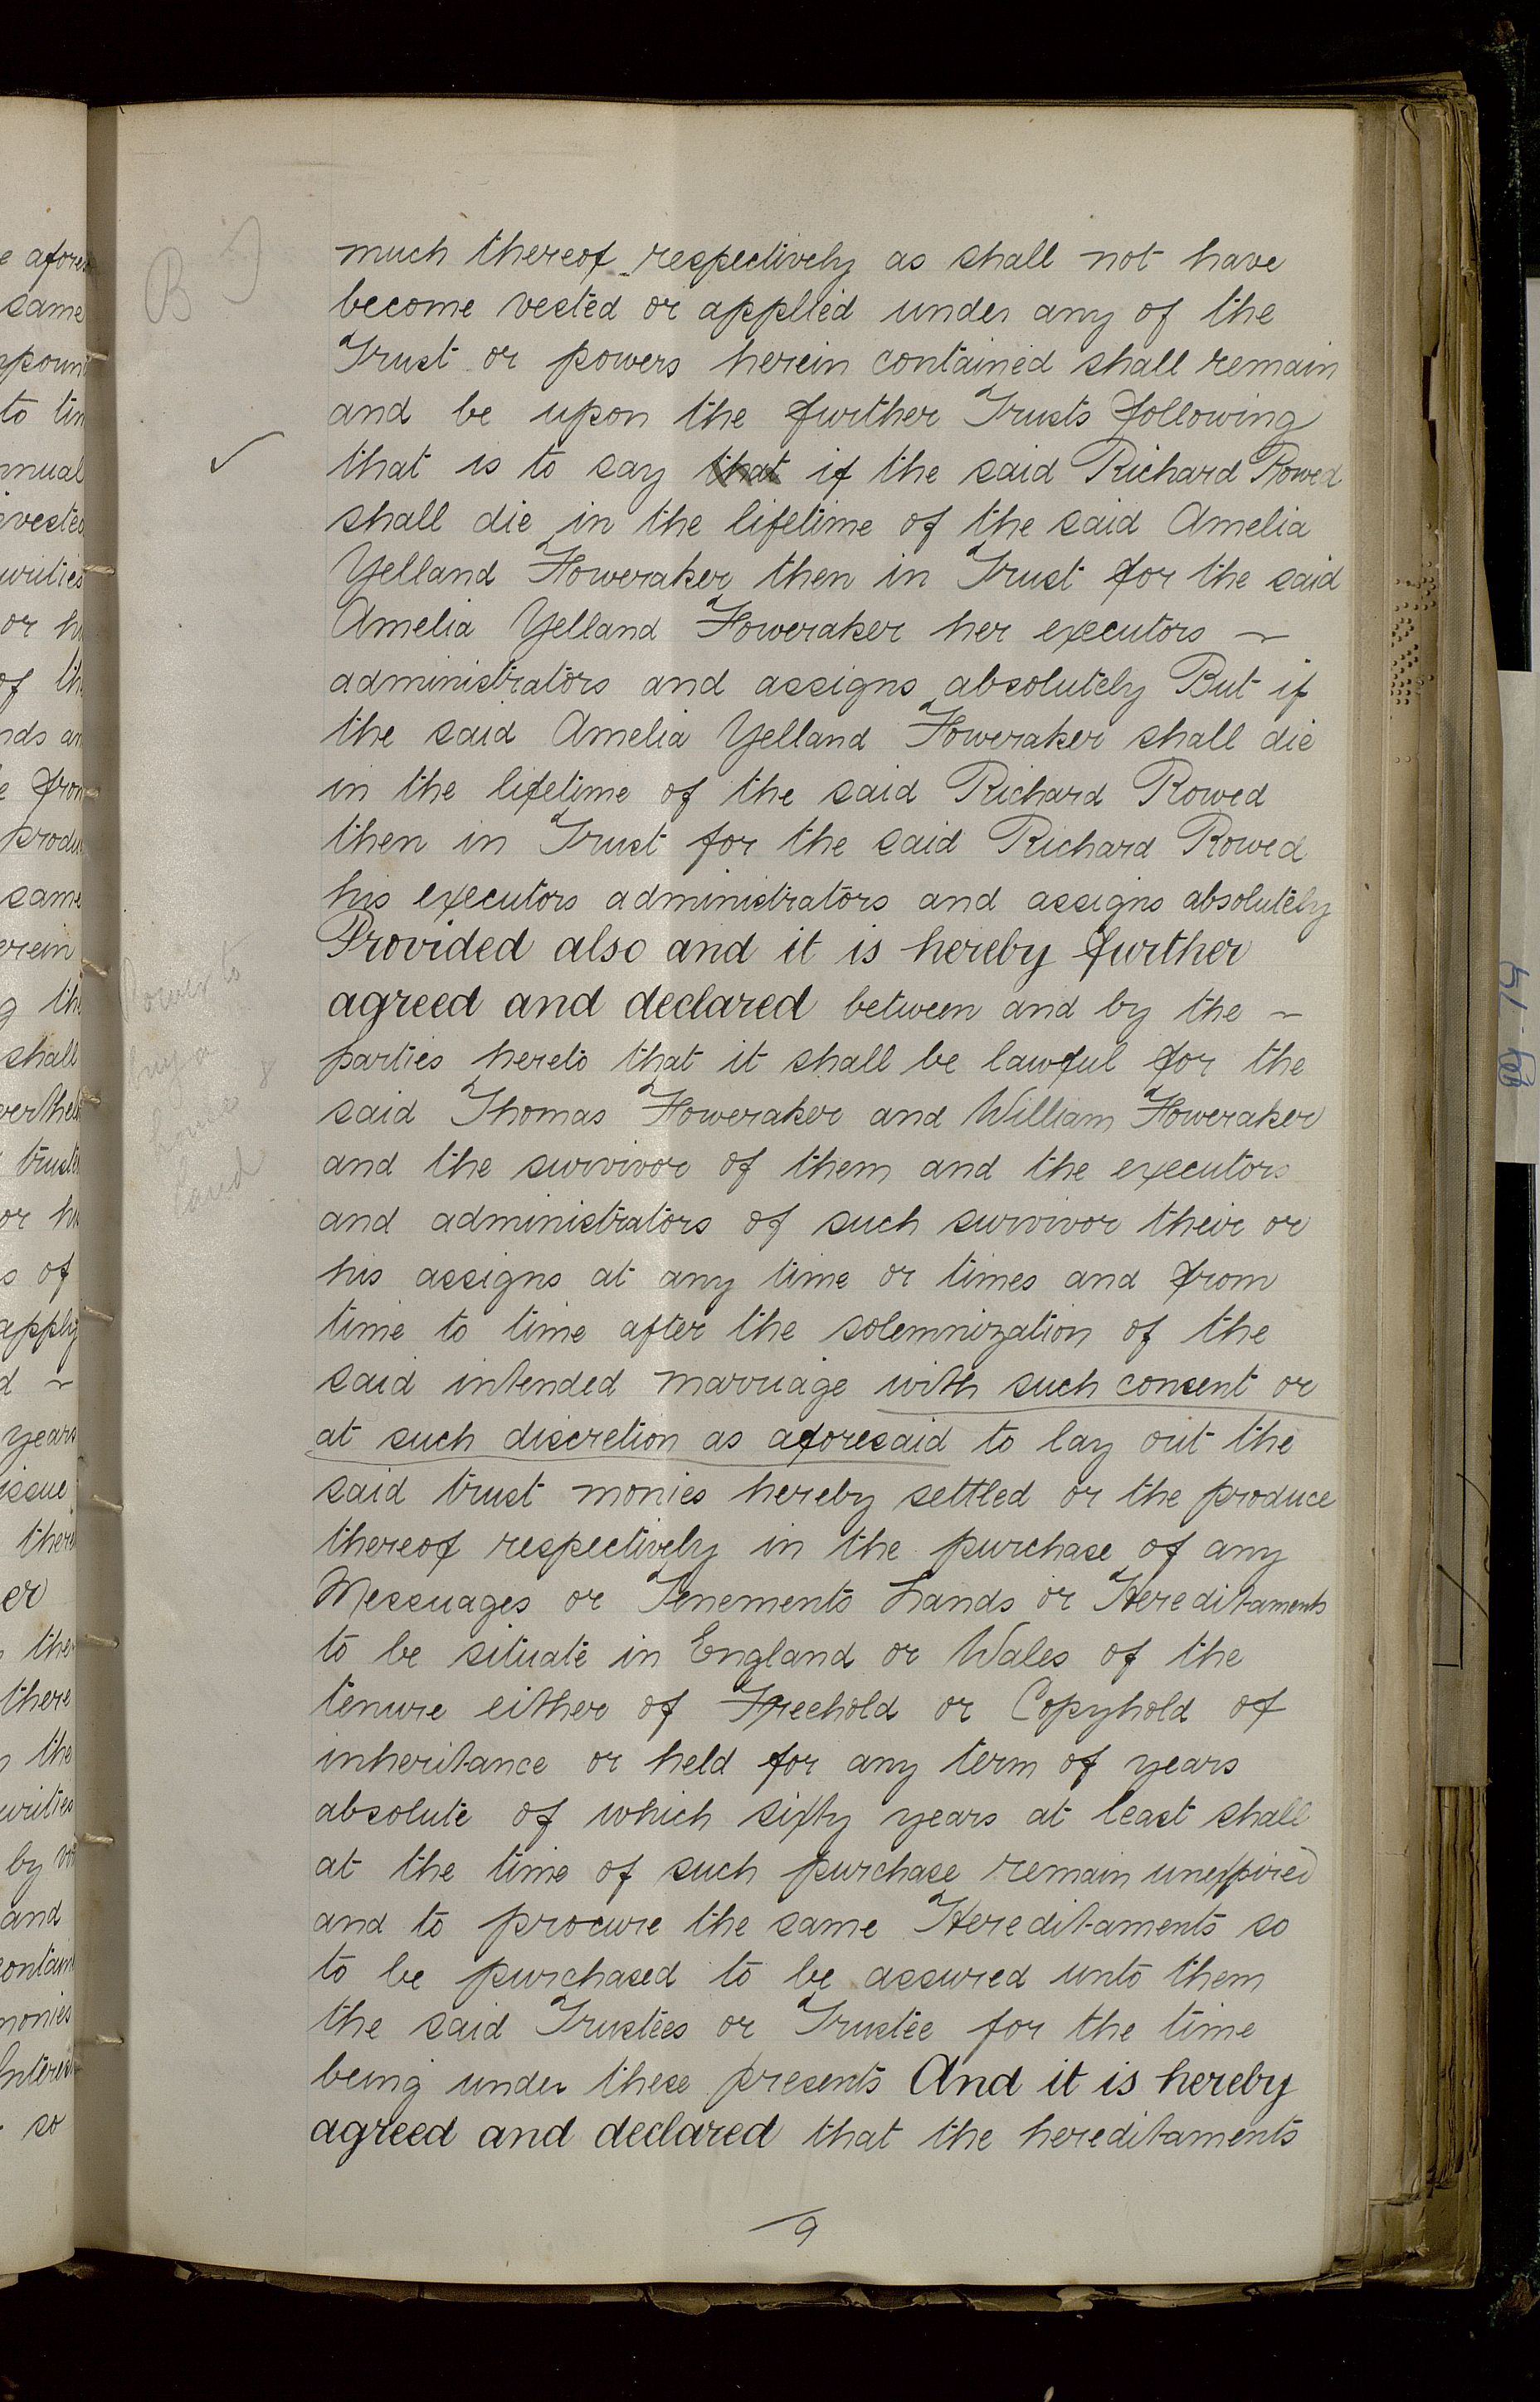 much thereof respectively as shall not have
become vested or applied under any of the
Trust or powers herein contained shall remain
and be upon the further Trusts following
that is to say that if the said Richard Rowed
shall die in the lifetime of the said Amelia
Yelland Foweraker then in Trust for the said
Amelia Yelland Foweraker her executors ~
administrators and assigns absolutely But if
the said Amelia Yelland Foweraker shall die
in the lifetime of the said Richard Rowed
then in Trust for the said Richard Rowed
his executors administrators and assigns absolutely
Provided also and it is hereby further
agreed and declared between and by the ~
parties hereto that it shall be lawful for the
said Thomas Foweraker and William Foweraker
and the survivor of them and the executors
and administrators of such survivor their or
his assigns at any time or times and from
time to time after the solemnization of the
said intended marriage with such consent or
at such discretion as aforesaid to lay out the
said trust monies hereby settled or the produce
thereof respectively in the purchase of any
Messuages or Tenements Lands or Hereditaments
to be situate in England or Wales of the
tenure either of Freehold or Copyhold of
inheritance or held for any term of years
absolute of which sixty years at least shall
at the time of such purchase remain unexpired
and to procure the same Hereditaments so
to be purchased to be assured unto them
the said Trustees or Trustee for the time
being under these presents And it is hereby
agreed and declared that the hereditaments
9
B
Power to
buy a
house &
land